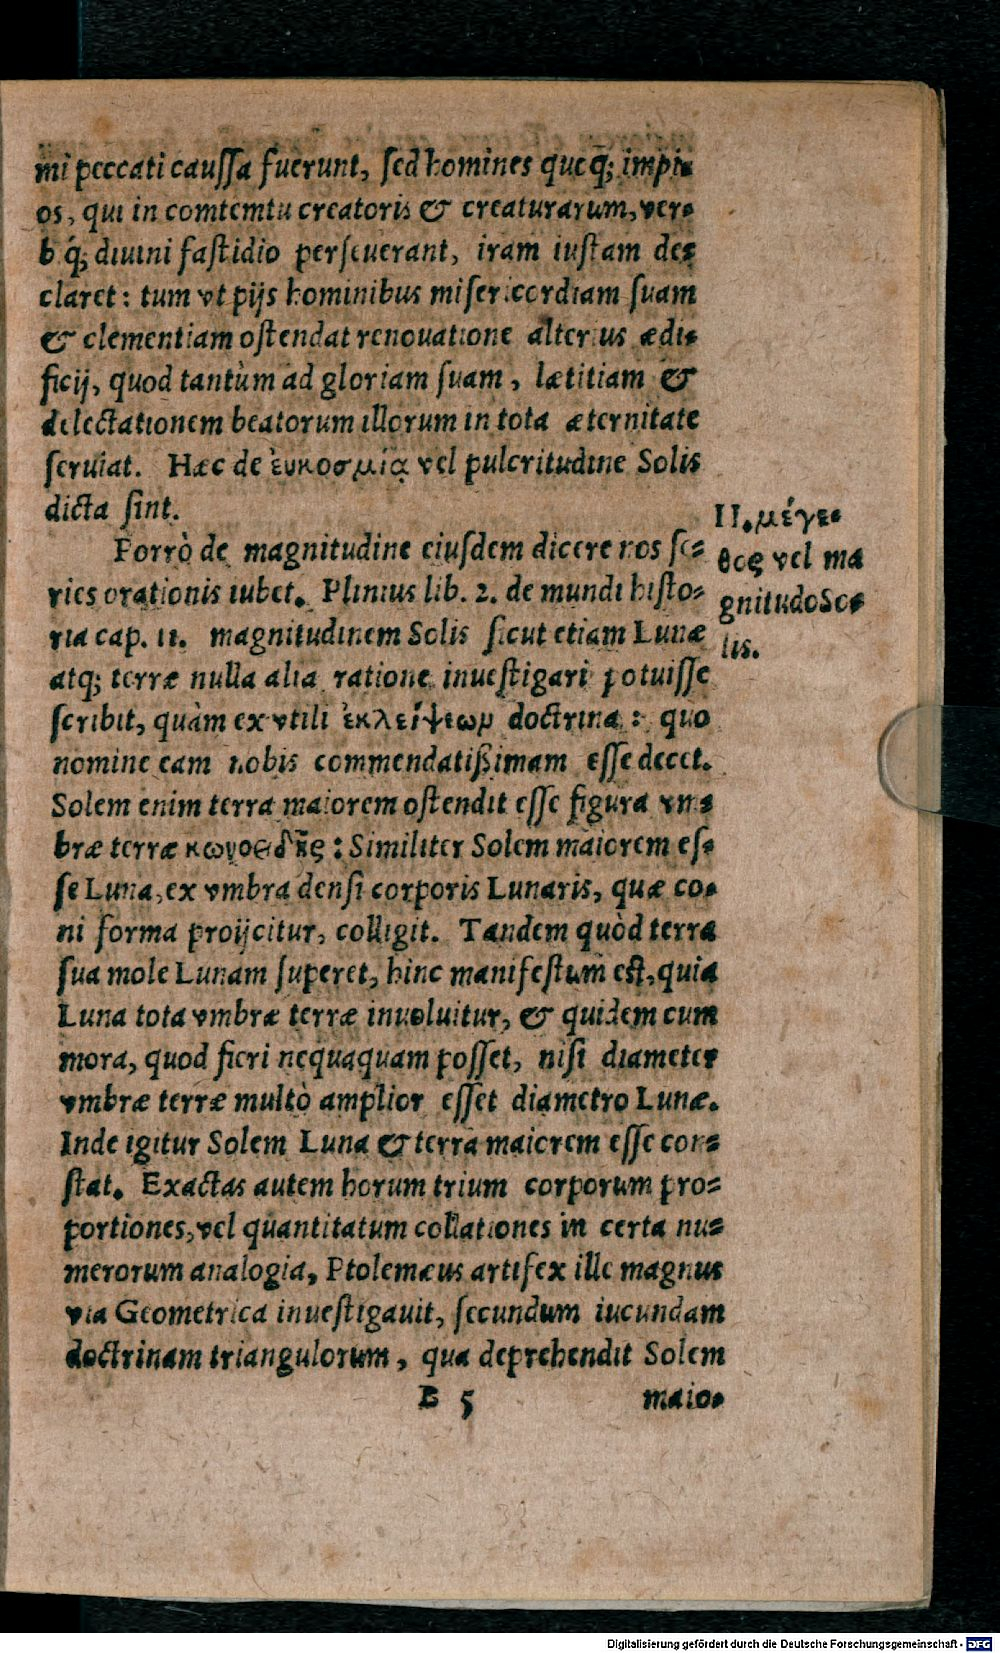 mi peccati caussa fuerunt, sed homines queq́; impi-
os, qui in comtemtu creatoris & creaturarum, ver-
b q́; diuini fastidio perseuerant, iram iustam de-
claret: tum vt pijs hominibus misericordiam suam
& clementiam ostendat renouatione alterius ædi-
ficij, quod tantùm ad gloriam suam, lætitiam &
delectationem beatorum illorum in tota æternitate
seruiat. Hæc de ἐυκοσμίᾳ vel pulcritudine Solis
dicta sint.
Porrò de magnitudine eiusdem dicere nos se-
ries orationis iubet. Plinius lib. 2. de mundi histo-
ria cap. 11. magnitudinem Solis sicut etiam Lunæ
atq; terræ nulla alia ratione inuestigari potuisse
scribit, quàm ex vtili ἐκλείψεωρ doctrina: quo
nomine eam nobis commendatißimam esse decet.
Solem enim terra maiorem ostendit esse figura vm-
bræ terræ κωνοειδὴς: Similiter Solem maiorem es-
se Luna, ex vmbra densi corporis Lunaris, quæ co-
ni forma proijcitur, colligit. Tandem quòd terra
sua mole Lunam superet, hinc manifestum est, quia
Luna tota vmbræ terræ inuoluitur, & quidem cum
mora, quod fieri nequaquam posset, nisi diameter
vmbræ terræ multò amplior esset diametro Lunæ.
Inde igitur Solem Luna & terra maiorem esse con-
stat. Exactas autem horum trium corporum pro-
portiones, vel quantitatum collationes in certa nu-
merorum analogia, Ptolemæus artifex ille magnus
via Geometrica inuestigauit, secundum iucundam
doctrinam triangulorum, qua deprehendit Solem
B 5 maio-
II. μέγε-
θος vel ma
gnitudo So-
lis.
Digitalisierung gefördert durch die Deutsche Forschungsgemeinschaft - DFG